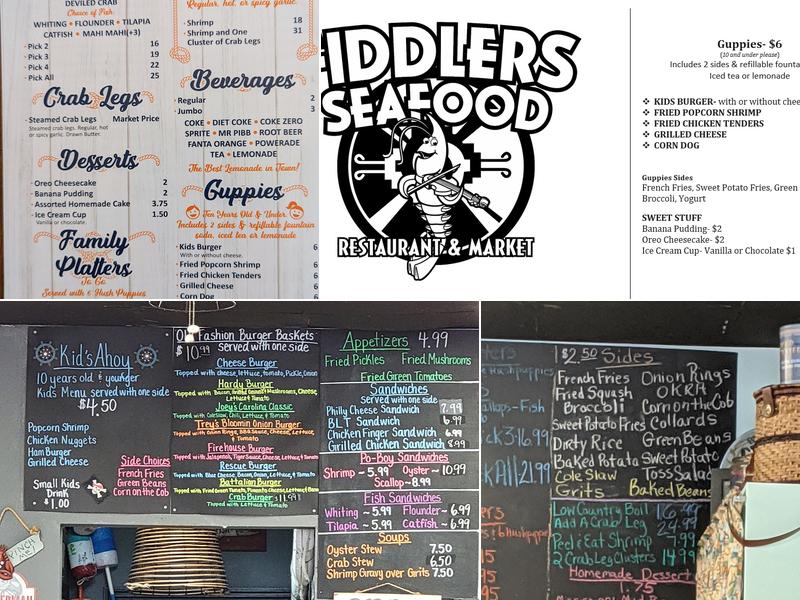 DEVILED CRAB
Choice of Fish:
WHITING • FLOUNDER • TILAPIA
CATFISH • MAHI MAHI(+3)
Pick 2 16
Pick 3 19
Pick 4 22
Pick All 25
Crab Legs
Steamed Crab Legs Market Price
Steamed crab legs. Regular, hot
or spicy garlic. Drawn Butter.
Desserts
Oreo Cheesecake 2
Banana Pudding 2
Assorted Homemade Cake 3.75
Ice Cream Cup 1.50
Vanilla or chocolate.
Family
Platters
To Go
Served with 6 Hush Puppies
Regular, hot, or spicy garlic.
Shrimp 18
Shrimp and One 31
Cluster of Crab Legs
Beverages
Regular 2
Jumbo 3
COKE • DIET COKE • COKE ZERO
SPRITE • MR PIBB • ROOT BEER
FANTA ORANGE • POWERADE
TEA • LEMONADE
The Best Lemonade in Town!
Guppies
Ten Years Old & Under
Includes 2 sides & refillable fountain
soda, iced tea or lemonade
Kids Burger 6
With or without cheese.
Fried Popcorn Shrimp 6
Fried Chicken Tenders 6
Grilled Cheese 6
Corn Dog 6
IDDLERS
SEAFOOD
RESTAURANT & MARKET
Guppies- $6
(10 and under please)
Includes 2 sides & refillable founta
Iced tea or lemonade
❖ KIDS BURGER- with or without chee
❖ FRIED POPCORN SHRIMP
❖ FRIED CHICKEN TENDERS
❖ GRILLED CHEESE
❖ CORN DOG
Guppies Sides
French Fries, Sweet Potato Fries, Green
Broccoli, Yogurt
SWEET STUFF
Banana Pudding- $2
Oreo Cheesecake- $2
Ice Cream Cup- Vanilla or Chocolate $1
Kid's Ahoy
10 years old & younger
Kids Menu served with one side
$4.50
Popcorn Shrimp
Chicken Nuggets
Ham Burger
Grilled Cheese
Side Choices
French Fries
Green Beans
Corn on the Cob
Small Kids
Drink
$1.00
Fashion Burger Baskets
$10.99 served with one side
Cheese Burger
Topped with cheese, lettuce, tomato, Pickle, Onion
Hardy Burger
Topped with Bacon, Grilled Onions, Mushrooms, Cheese,
Lettuce & Tomato
Joey's Carolina Classic
Topped with Coleslaw, Chili, Lettuce & Tomato
Trey's Bloomin Onion Burger
Topped with Onion Rings, BBQ Sauce, Cheese, Lettuce,
& Tomato
Firehouse Burger
Topped with Jalapeños, Tiger Sauce, Cheese, Lettuce & Tomato
Rescue Burger
Topped with Blue Cheese, Bacon, Onion, Lettuce & Tomato
Battalion Burger
Topped with Fried Green Tomato, Pimento Cheese, Lettuce & Bacon
Crab Burger $11.99
Topped with Lettuce & Tomato
Appetizers 4.99
Fried Pickles Fried Mushrooms
Fried Green Tomatoes
Sandwiches
Served with one side
Philly Cheese Sandwich 7.99
BLT Sandwich 6.99
Chicken Finger Sandwich 6.99
Grilled Chicken Sandwich 8.99
Po-Boy Sandwiches
Shrimp ~ 5.99 Oyster ~ 10.99
Scallop ~ 8.99
Fish Sandwiches
Whiting ~ 5.99 Flounder ~ 6.99
Tilapia ~ 5.99 Catfish ~ 6.99
Soups
Oyster Stew 7.50
Crab Stew 6.50
Shrimp Gravy over Grits 7.50
hushpuppies
Fish
Pick 3 16.99
k All 21.99
$2.50 Sides
French Fries Onion Rings
Fried Squash OKRA
Broccoli Corn on the Cob
Sweet Potato Fries Collards
Dirty Rice Green Beans
Baked Potato Sweet Potato
Cole Slaw Toss Salad
Grits Baked Beans
Low Country Boil 16.99
Add A Crab Leg 24.99
Peel & Eat Shrimp 7.99
2 Crab Leg Clusters 14.99
Homemade Dessert
1.75